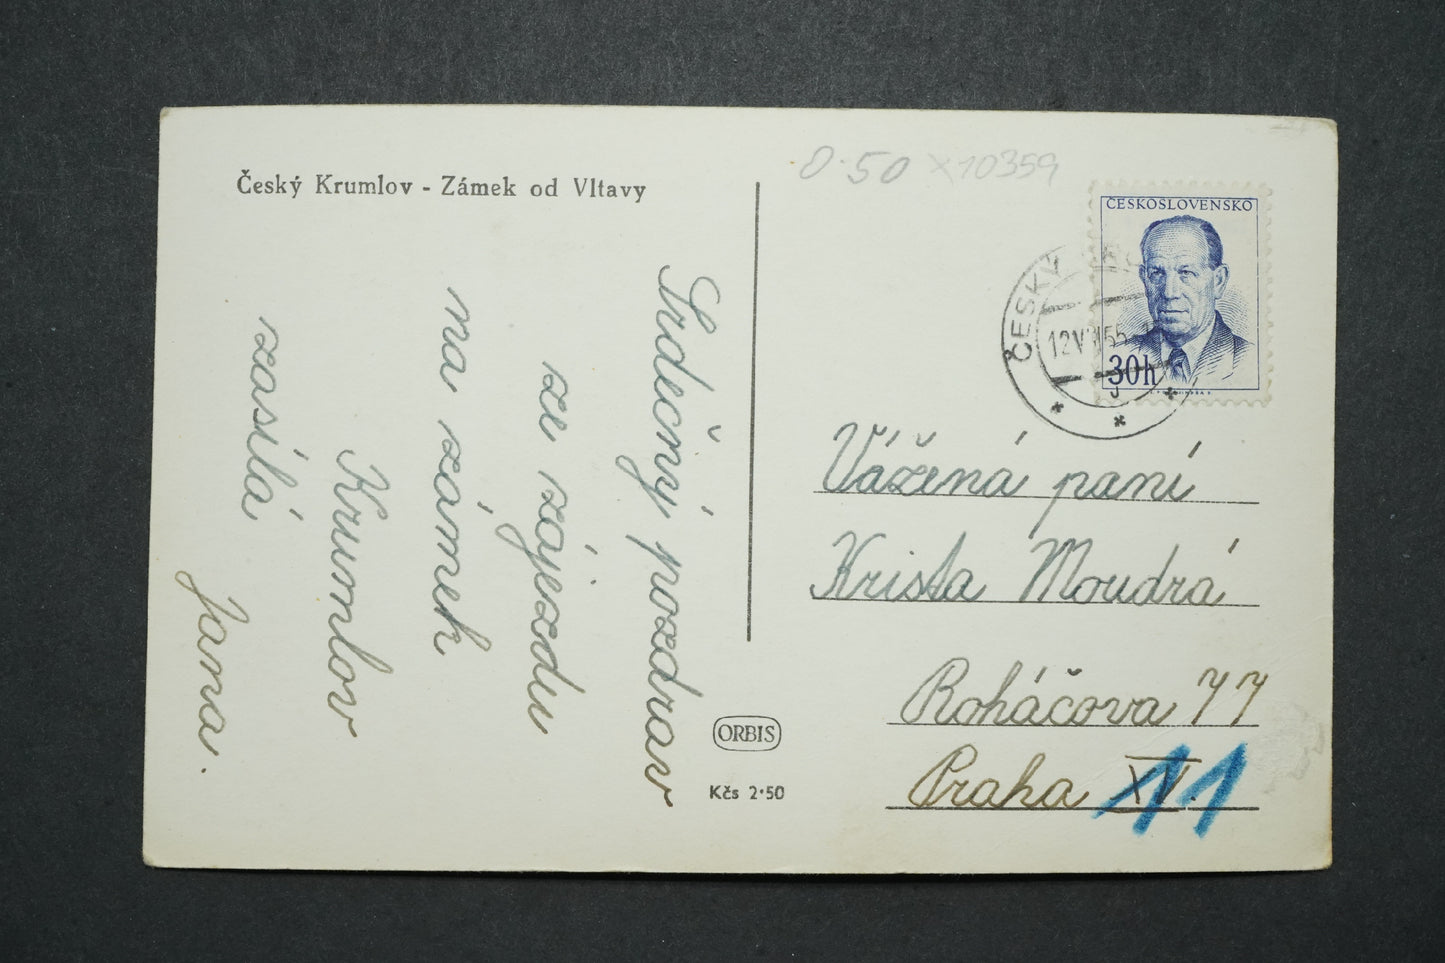 Český Krumlov - Zámek od Vltavy
Srdečný pozdrav
ze zájezdu
na zámek
Krumlov
zasílá
Jana.
ORBIS
Kčs 2·50
0·50 x10359
ČESKOSLOVENSKO
30h
ČESKÝ
Vážená paní
Krista Moudrá
Roháčova 77
Praha XV.
11